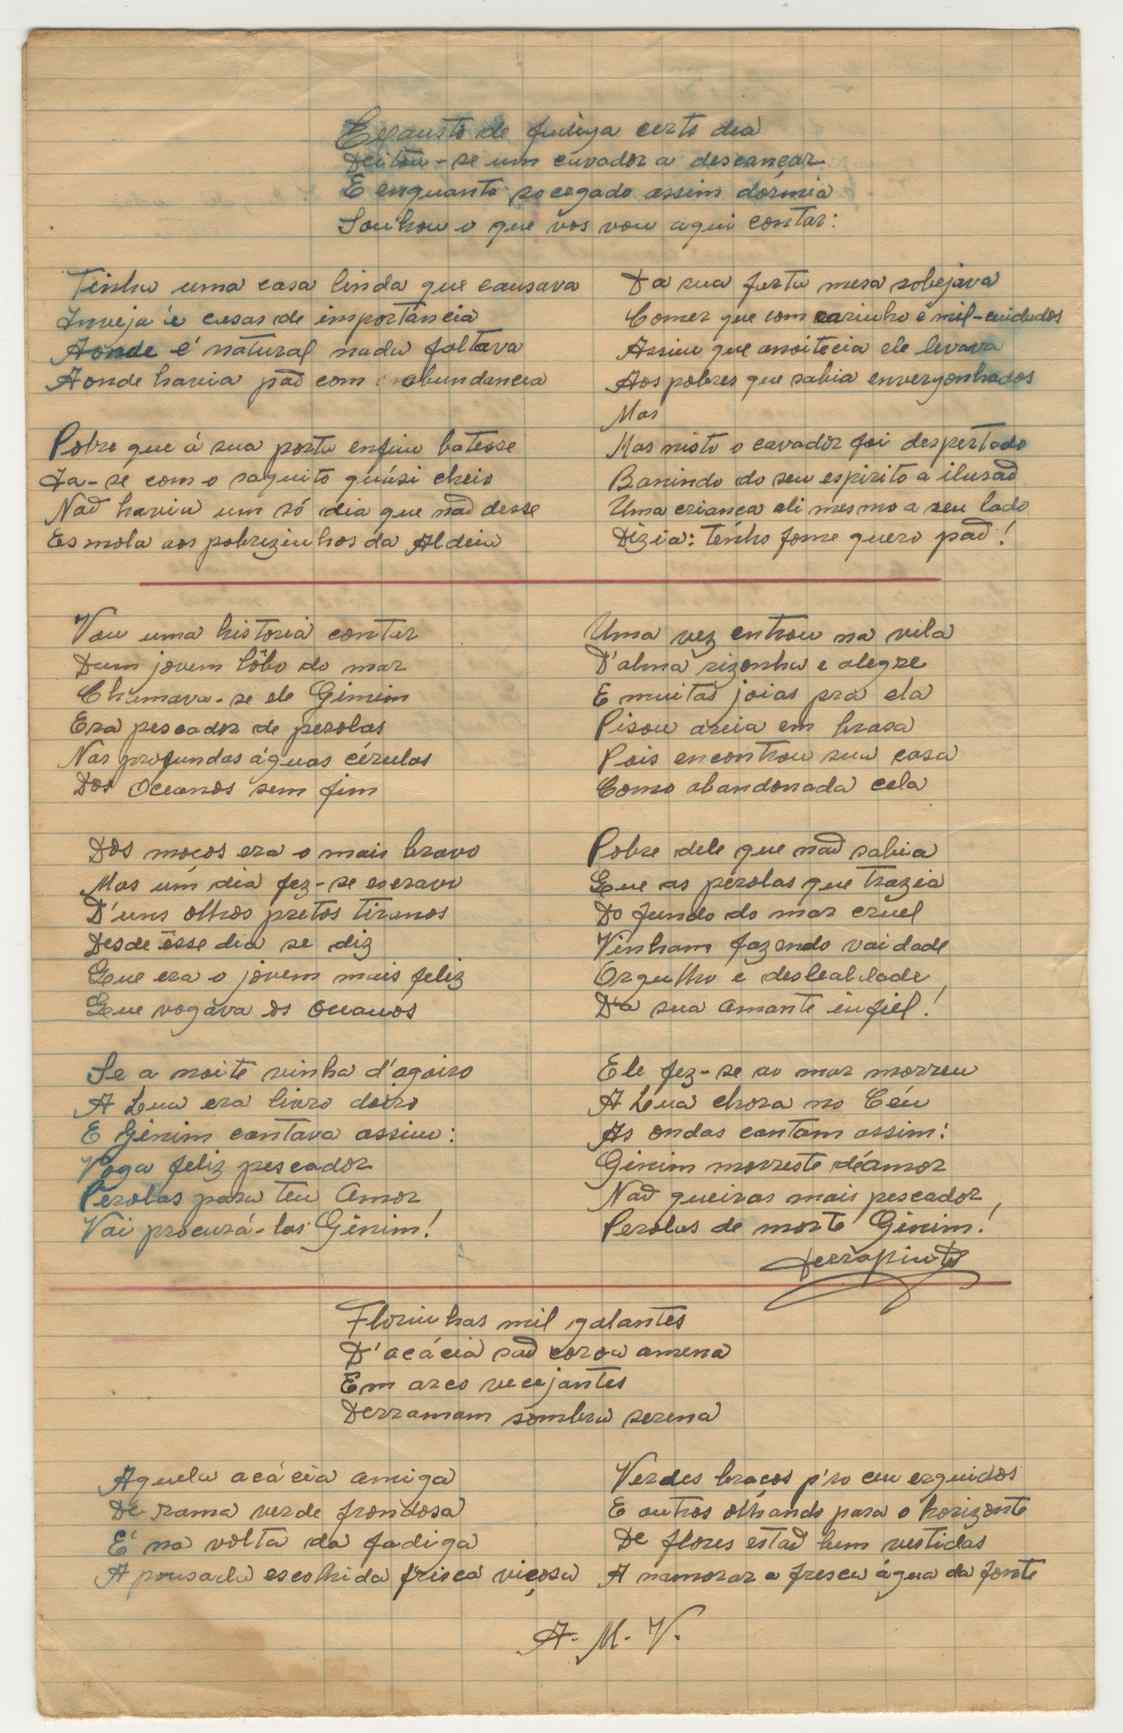 Exausto de fadiga certo dia
Deitou-se um cavador a descançar
E enquanto socegado assim dórmia
Sonhou o que vos vou aqui contar:
Tinha uma casa linda que causava
Inveja ás casas de importáncia
Aonde é natural nada faltava
Aonde havia pão com abundancia
Pobre que á sua porta enfim batesse
Ia-se com o saquito quási cheio
Não havia um só dia que não desse
Esmola aos pobrezinhos da Aldeia
Da sua farta mesa sobejava
Comer que com carinho e mil-cuidados
Assim que anoitecia ele levava
Aos pobres que sabia envergonhados
Mas
Mas nisto o cavador foi despertado
Banindo do seu espirito a ilusão
Uma criança ali mesmo a seu lado
Dizia: tenho fome quero pão!
Vou uma historia contar
Dum jovem lôbo do mar
Chamava-se ele Ginim
Era pescador de perolas
Nas profundas águas cérulas
Dos Oceanos sem fim
Dos moços era o mais bravo
Mas um dia fez-se escravo
D'uns olhos pretos tiranos
Desde êsse dia se diz
Que era o jovem mais feliz
Que vogava os oceanos
Se a noite vinha d'agoiro
A Lua era livro doiro
E Ginim cantava assim:
Voga feliz pescador
Perolas para teu Amor
Vai procurá-las Ginim!
Uma vez entrou na vila
D'alma rizonha e alegre
E muitas joias pra ela
Pisou areia em brasa
Pois encontrou sua casa
Como abandonada cela
Pobre dele que não sabia
Que as pérolas que trazia
Do fundo do mar cruel
Vinham fazendo vaidade
Orgulho e deslealdade
Da sua amante infiel!
Ele fez-se ao mar morreu
A Lua chora no Céu
As ondas cantam assim:
Ginim morreste de amor
Não queiras mais pescador
Perolas de morte Ginim!
Florinhas mil galantes
D'acácia são coroa amena
Em arco vecejantes
Derramam sombra serena
Aquela acácia amiga
De rama verde frondosa
É na volta da fadiga
A pousada escolhida frisca viçosa
Verdes braços p'ro ceu erguidos
E outros olhando para o horizonte
De flores estão bem vestidas
A namorar a fresca água da fonte
A. M. V.